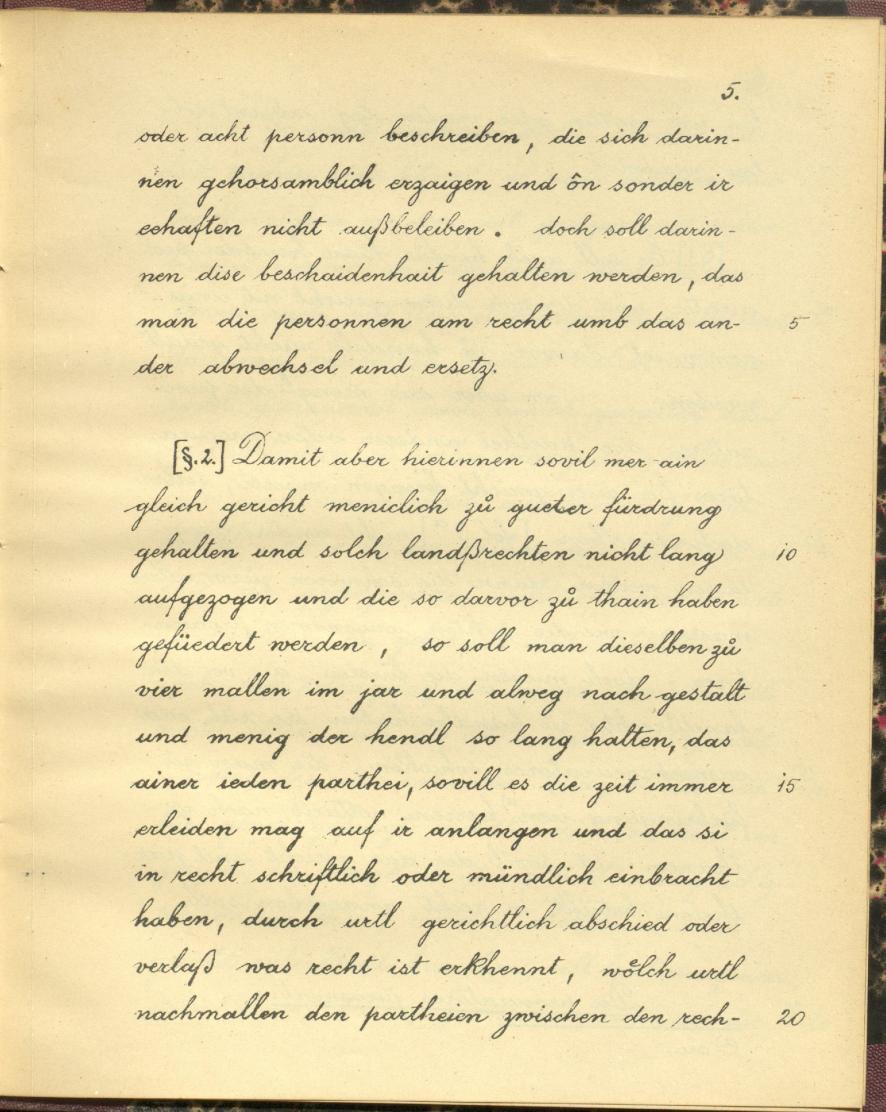 5.
oder acht personn beschreiben, die sich darin-
nen gehorsamblich erzaigen und ôn sonder ir
eehaften nicht außbeleiben. doch soll darin-
nen dise beschaidenhait gehalten werden, das
man die personnen am recht umb das an- 5
der abwechsel und ersetz.
[§.2.] Damit aber hierinnen sovil mer ain
gleich gericht meniclich zů gueter fürdrung
gehalten und solch landßrechten nicht lang 10
aufgezogen und die so darvor zů thain haben
gefüedert werden, so soll man dieselben zů
vier mallen im jar und alweg nach gestalt
und menig der hendl so lang halten, das
ainer ieden parthei, sovill es die zeit immer 15
erleiden mag auf ir anlangen und das si
in recht schriftlich oder mündlich einbracht
haben, durch urtl gerichtlich abschied oder
verlaß was recht ist erkhennt, woͤlch urtl
nachmallen den partheien zwischen den rech- 20